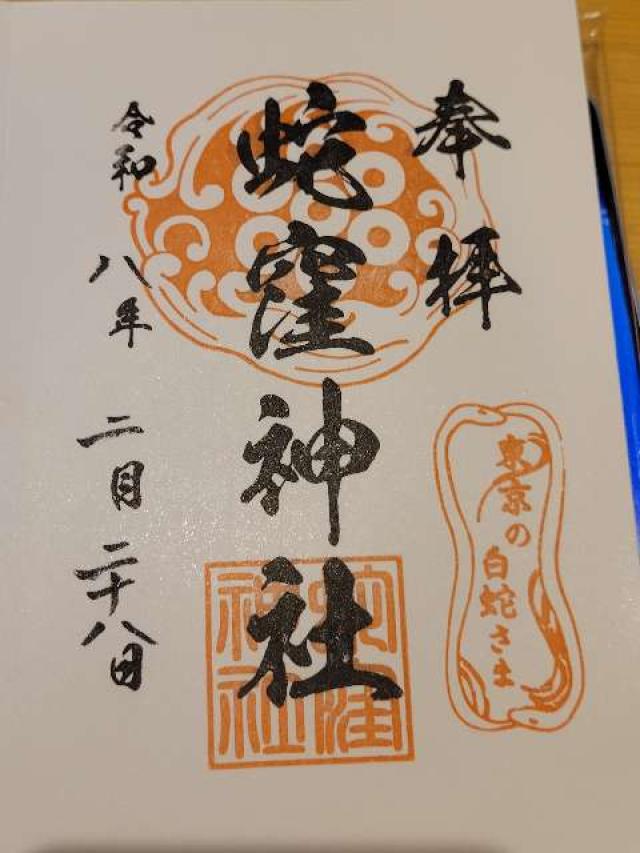 奉拝
蛇窪神社
令和八年二月二十八日
東京の
白蛇さま
蛇窪
神社